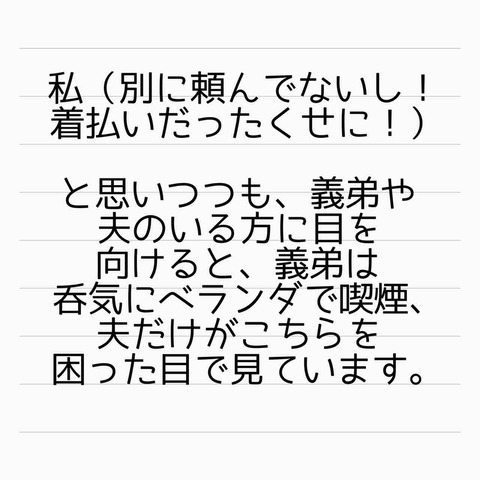 私（別に頼んでないし！
着払いだったくせに！）
と思いつつも、義弟や
夫のいる方に目を
向けると、義弟は
呑気にベランダで喫煙、
夫だけがこちらを
困った目で見ています。